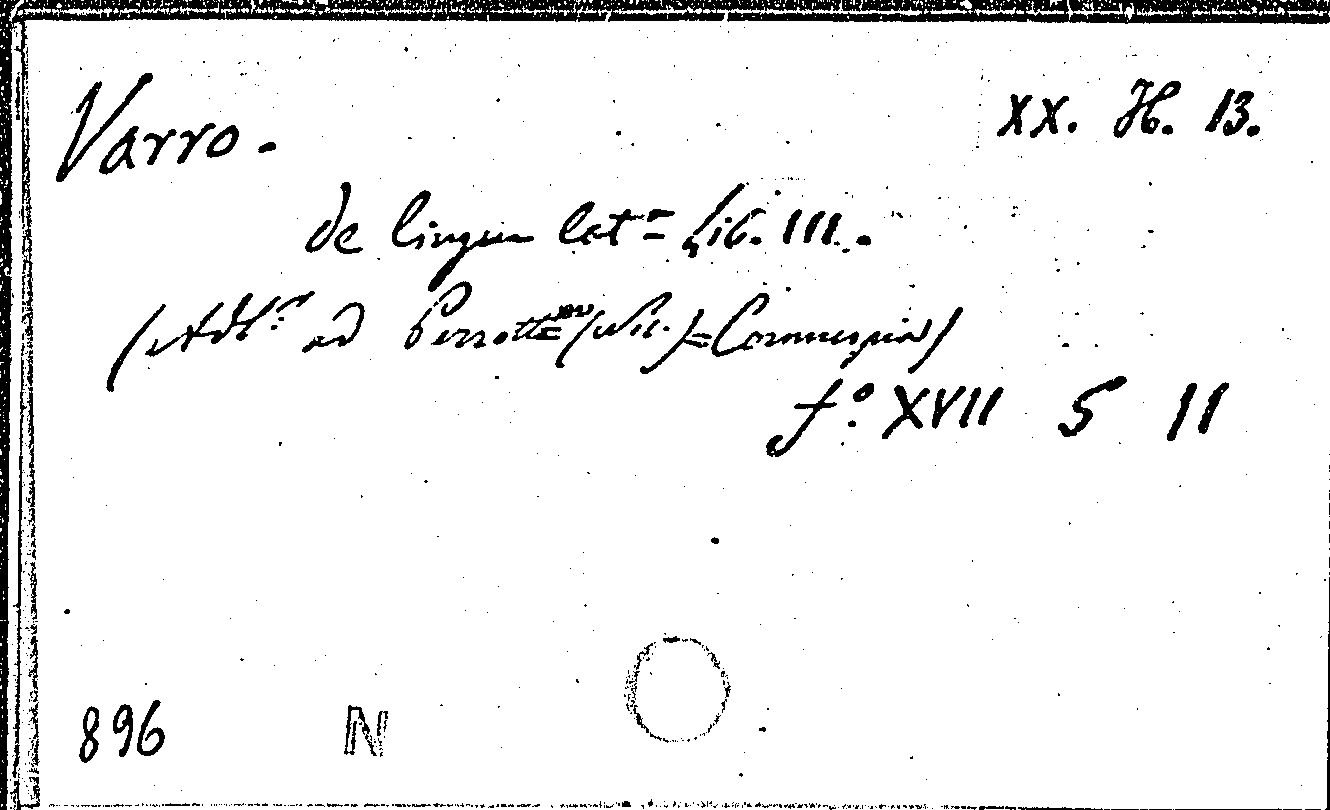 Varro. XX. H. 13.
de lingua lat= Lib. III.
ad (Nic.)=Cornucopia)
f.º XVII 5 11
896 N